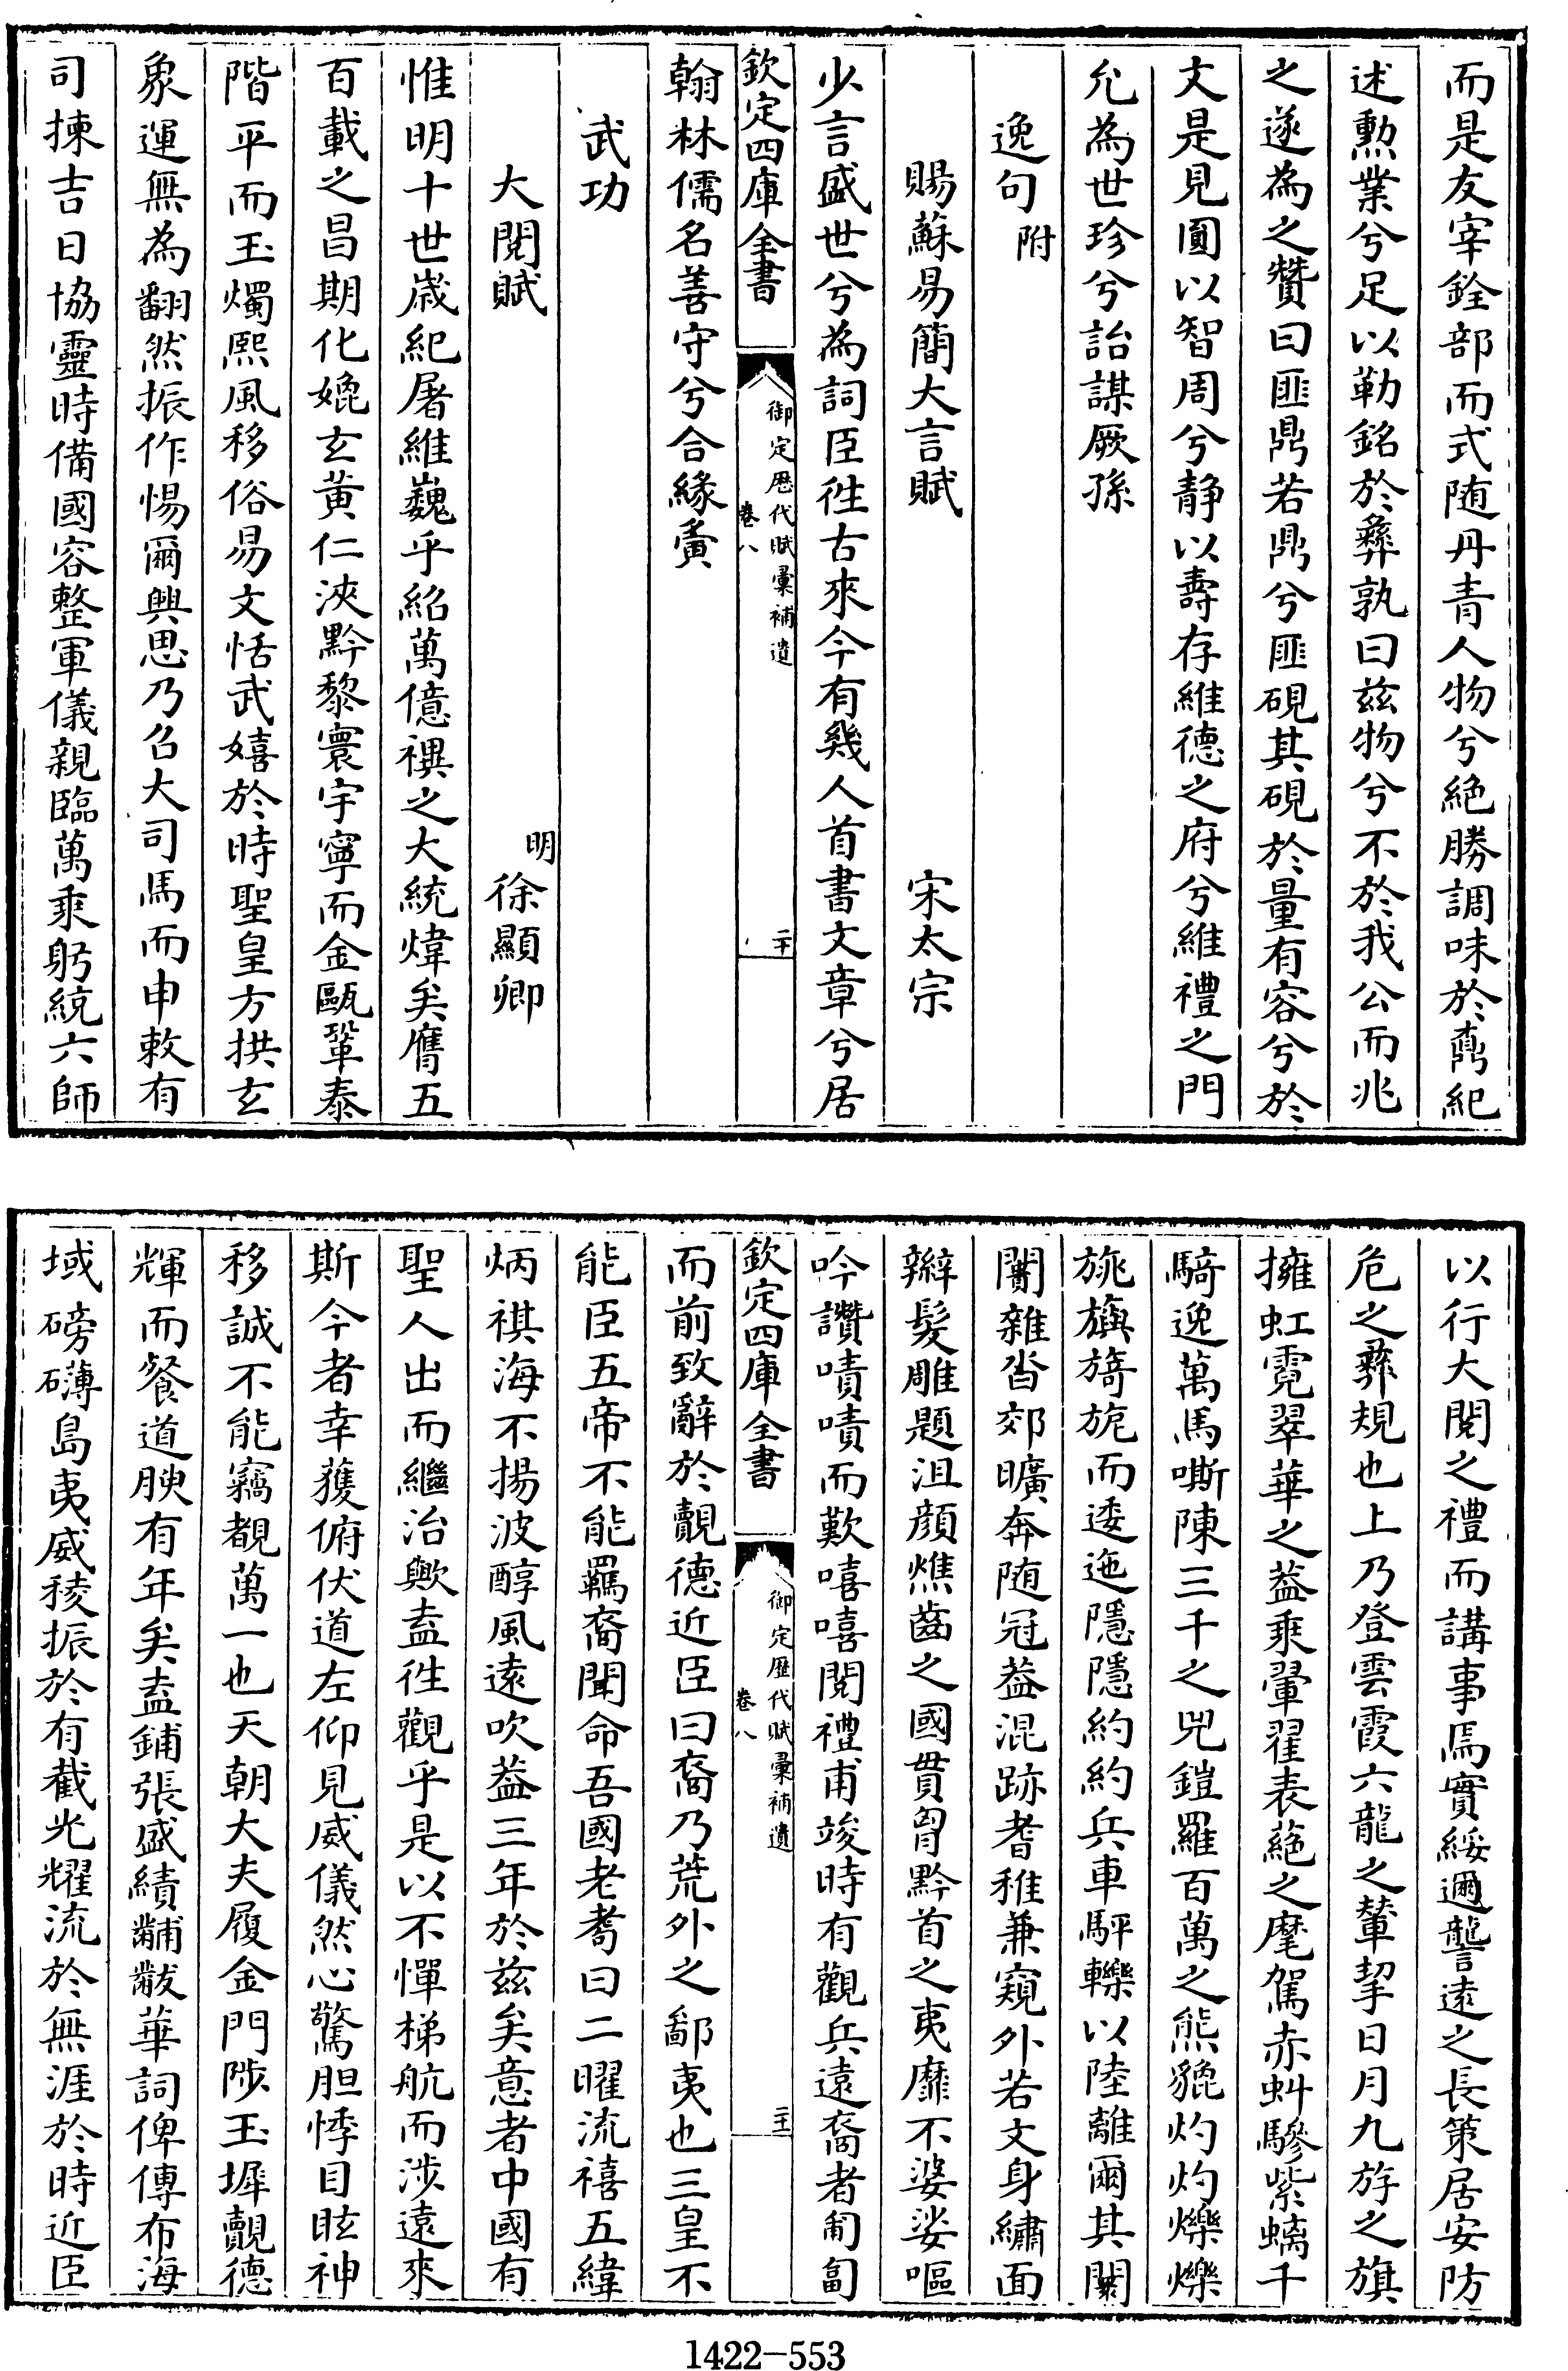 而是友宰銓部而式随丹青人物兮絶勝調味於鼐紀
述勲業兮足以勒銘於彞孰曰兹物兮不於我公而兆
之遂為之贊曰匪鼎若鼎兮匪硯其硯於量有容兮於
文是見圎以智周兮静以壽存維德之府兮維禮之門
允為世珍兮詒謀厥孫
逸句附
賜蘇易簡大言賦　宋太宗
少言盛世兮為詞臣徃古來今有幾人首書文章兮居
欽定四庫全書
御定厯代賦彙補遺
卷八
二十
翰林儒名善守兮合緣夤
武功
大閱賦　明徐顯卿
惟明十世嵗紀屠維巍乎紹萬億禩之大統煒矣膺五
百載之昌期化媲玄黄仁浹黔黎寰宇寧而金甌鞏泰
階平而玉燭熙風移俗易文恬武嬉於時聖皇方拱玄
象運無為翻然振作惕爾興思乃召大司馬而申敕有
司揀吉日協靈時備國容整軍儀親臨萬乘躬統六師
以行大閱之禮而講事焉實綏邇讋遠之長策居安防
危之彞規也上乃登雲霞六龍之輦挈日月九斿之旗
擁虹霓翠華之葢乘翬翟表蕝之麾駕赤虯驂紫螭千
騎逸萬馬嘶陳三千之兕鎧羅百萬之熊貔灼灼爍爍
旐旟旖旎而逶迤隱隱約約兵車軯轢以陸離爾其闐
闠雜沓郊曠奔随冠葢混跡耆稚兼窺外若文身繡面
辮髮雕題沮顔燋齒之國貫胷黔首之夷靡不婆娑嘔
吟讚嘖嘖而歎嘻嘻閱禮甫竣時有觀兵遠裔者匍匐
欽定四庫全書
御定歷代賦彙補遺
卷八
二十一
而前致辭於覿德近臣曰裔乃荒外之鄙夷也三皇不
能臣五帝不能羈裔聞命吾國老耈曰二曜流禧五緯
炳祺海不揚波醇風遠吹葢三年於兹矣意者中國有
聖人出而繼治歟盍徃觀乎是以不憚梯航而涉遠來
斯今者幸獲俯伏道左仰見威儀然心驚胆悸目眩神
移誠不能竊覩萬一也天朝大夫履金門陟玉墀覿德
輝而餐道腴有年矣盍鋪張盛績黼黻華詞俾傳布海
域磅礴島夷威稜振於有截光耀流於無涯於時近臣
1422-553